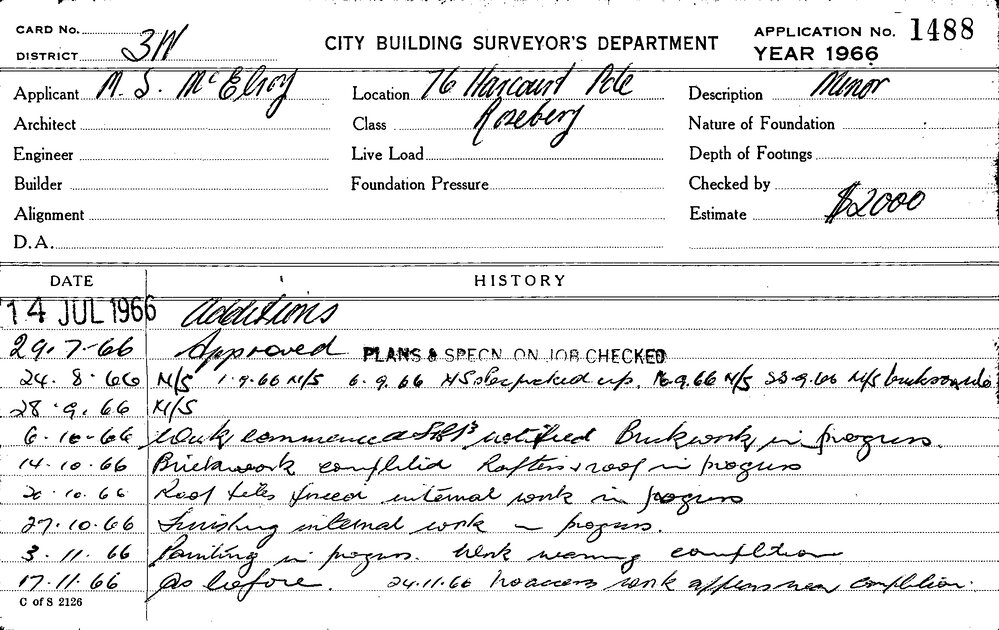 CARD No.
DISTRICT 3W
CITY BUILDING SURVEYOR'S DEPARTMENT
APPLICATION No. 1488
YEAR 1966
Applicant M. S. McElroy
Location 76 Harcourt Pde
Rosebery
Description Minor
Architect
Class
Nature of Foundation
Engineer
Live Load
Depth of Footings
Builder
Foundation Pressure
Checked by
Alignment
Estimate $2000
D.A.
DATE HISTORY
14 JUL 1966 Additions
29.7.66 Approved PLANS & SPECN. ON JOB CHECKED
24.8.66 N/S 1.9.66 N/S 6.9.66 N/S up. 16.9.66 N/S 23.9.66 N/S
28.9.66 N/S
6.10.66 Work commenced notified Brickwork in progress.
14.10.66 Brickwork completed Rafters & roof in progress
20.10.66 Roof tiles fixed internal work in progress
27.10.66 Finishing internal work in progress.
3.11.66 Painting in progress. Work nearing completion
17.11.66 As before. 24.11.66 No access work appears near completion.
C of S 2126